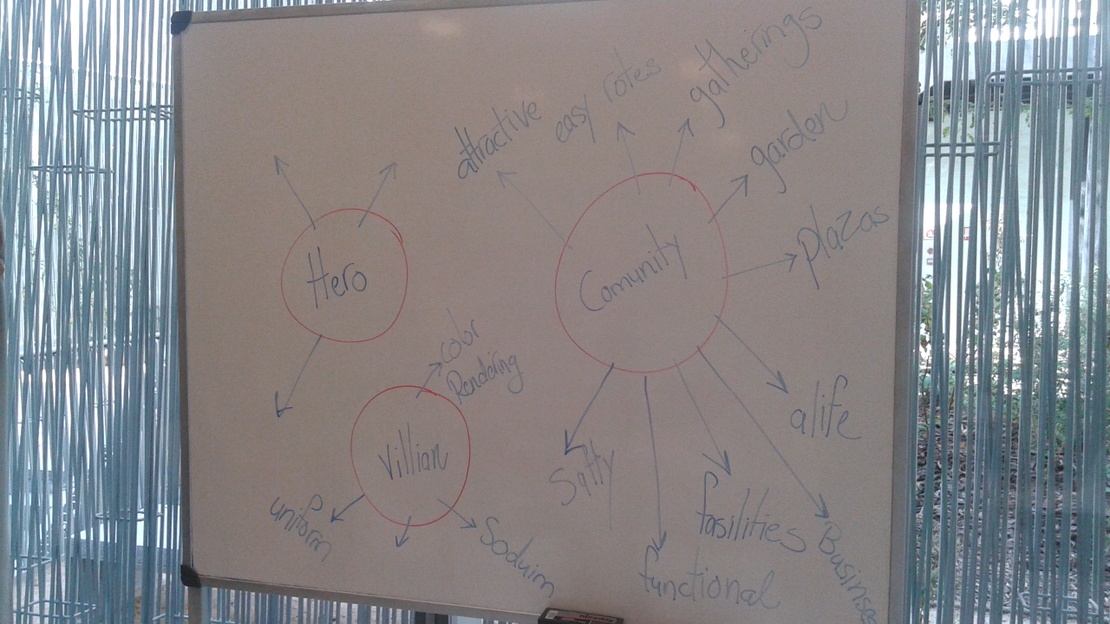 Hero
attractive
easy rotes
gatherings
garden
plazas
Comunity
alife
Businss
fasilities
functional
Sqtty
color
Rendering
Villian
uniform
Soduim